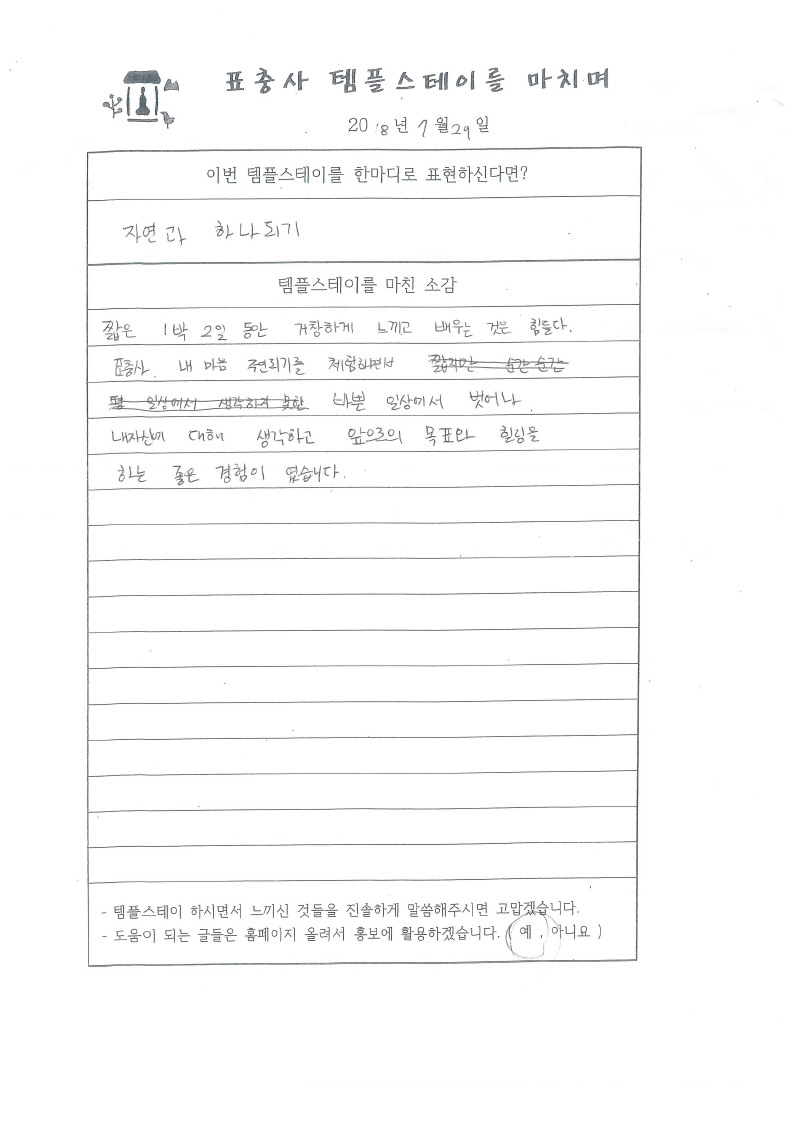 표충사 템플스테이를 마치며
2018년 7월 29일
이번 템플스테이를 한마디로 표현하신다면?
자연과 하나되기
템플스테이를 마친 소감
짧은 1박 2일 동안 거창하게 느끼고 배우는 것은 힘들다.
표충사. 내 마음 체험하면서 짧지만 순간순간
일상에서 생각하지 못한 바쁜 일상에서 벗어나
내자신에 대해 생각하고 앞으로의 목표와 힐링을
하는 좋은 경험이 였습니다.
- 템플스테이 하시면서 느끼신 것들을 진솔하게 말씀해주시면 고맙겠습니다.
- 도움이 되는 글들은 홈페이지 올려서 홍보에 활용하겠습니다. ( 예 , 아니요 )